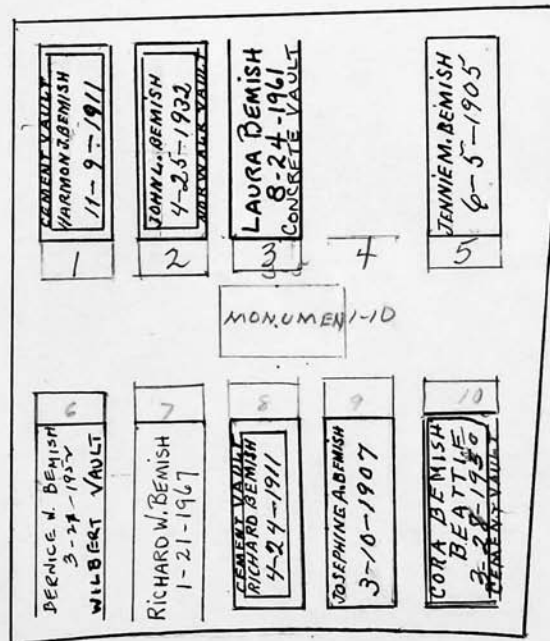 CEMENT VAULT
HARMON J. BEMISH
11-9-1911
1
JOHN L. BEMISH
4-25-1932
NORWALK VAULT
2
LAURA BEMISH
8-24-1961
CONCRETE VAULT
3
4
JENNIE M. BEMISH
6-5-1905
5
MONUMEN 1-10
6
BERNICE W. BEMISH
WILBERT VAULT
7
RICHARD W. BEMISH
1-21-1967
8
CEMENT VAULT
RICHARD BEMISH
4-24-1911
9
JOSEPHINE A. BEMISH
3-10-1907
10
CORA BEMISH
BEATTIE
3-28-1950
CEMENT VAULT